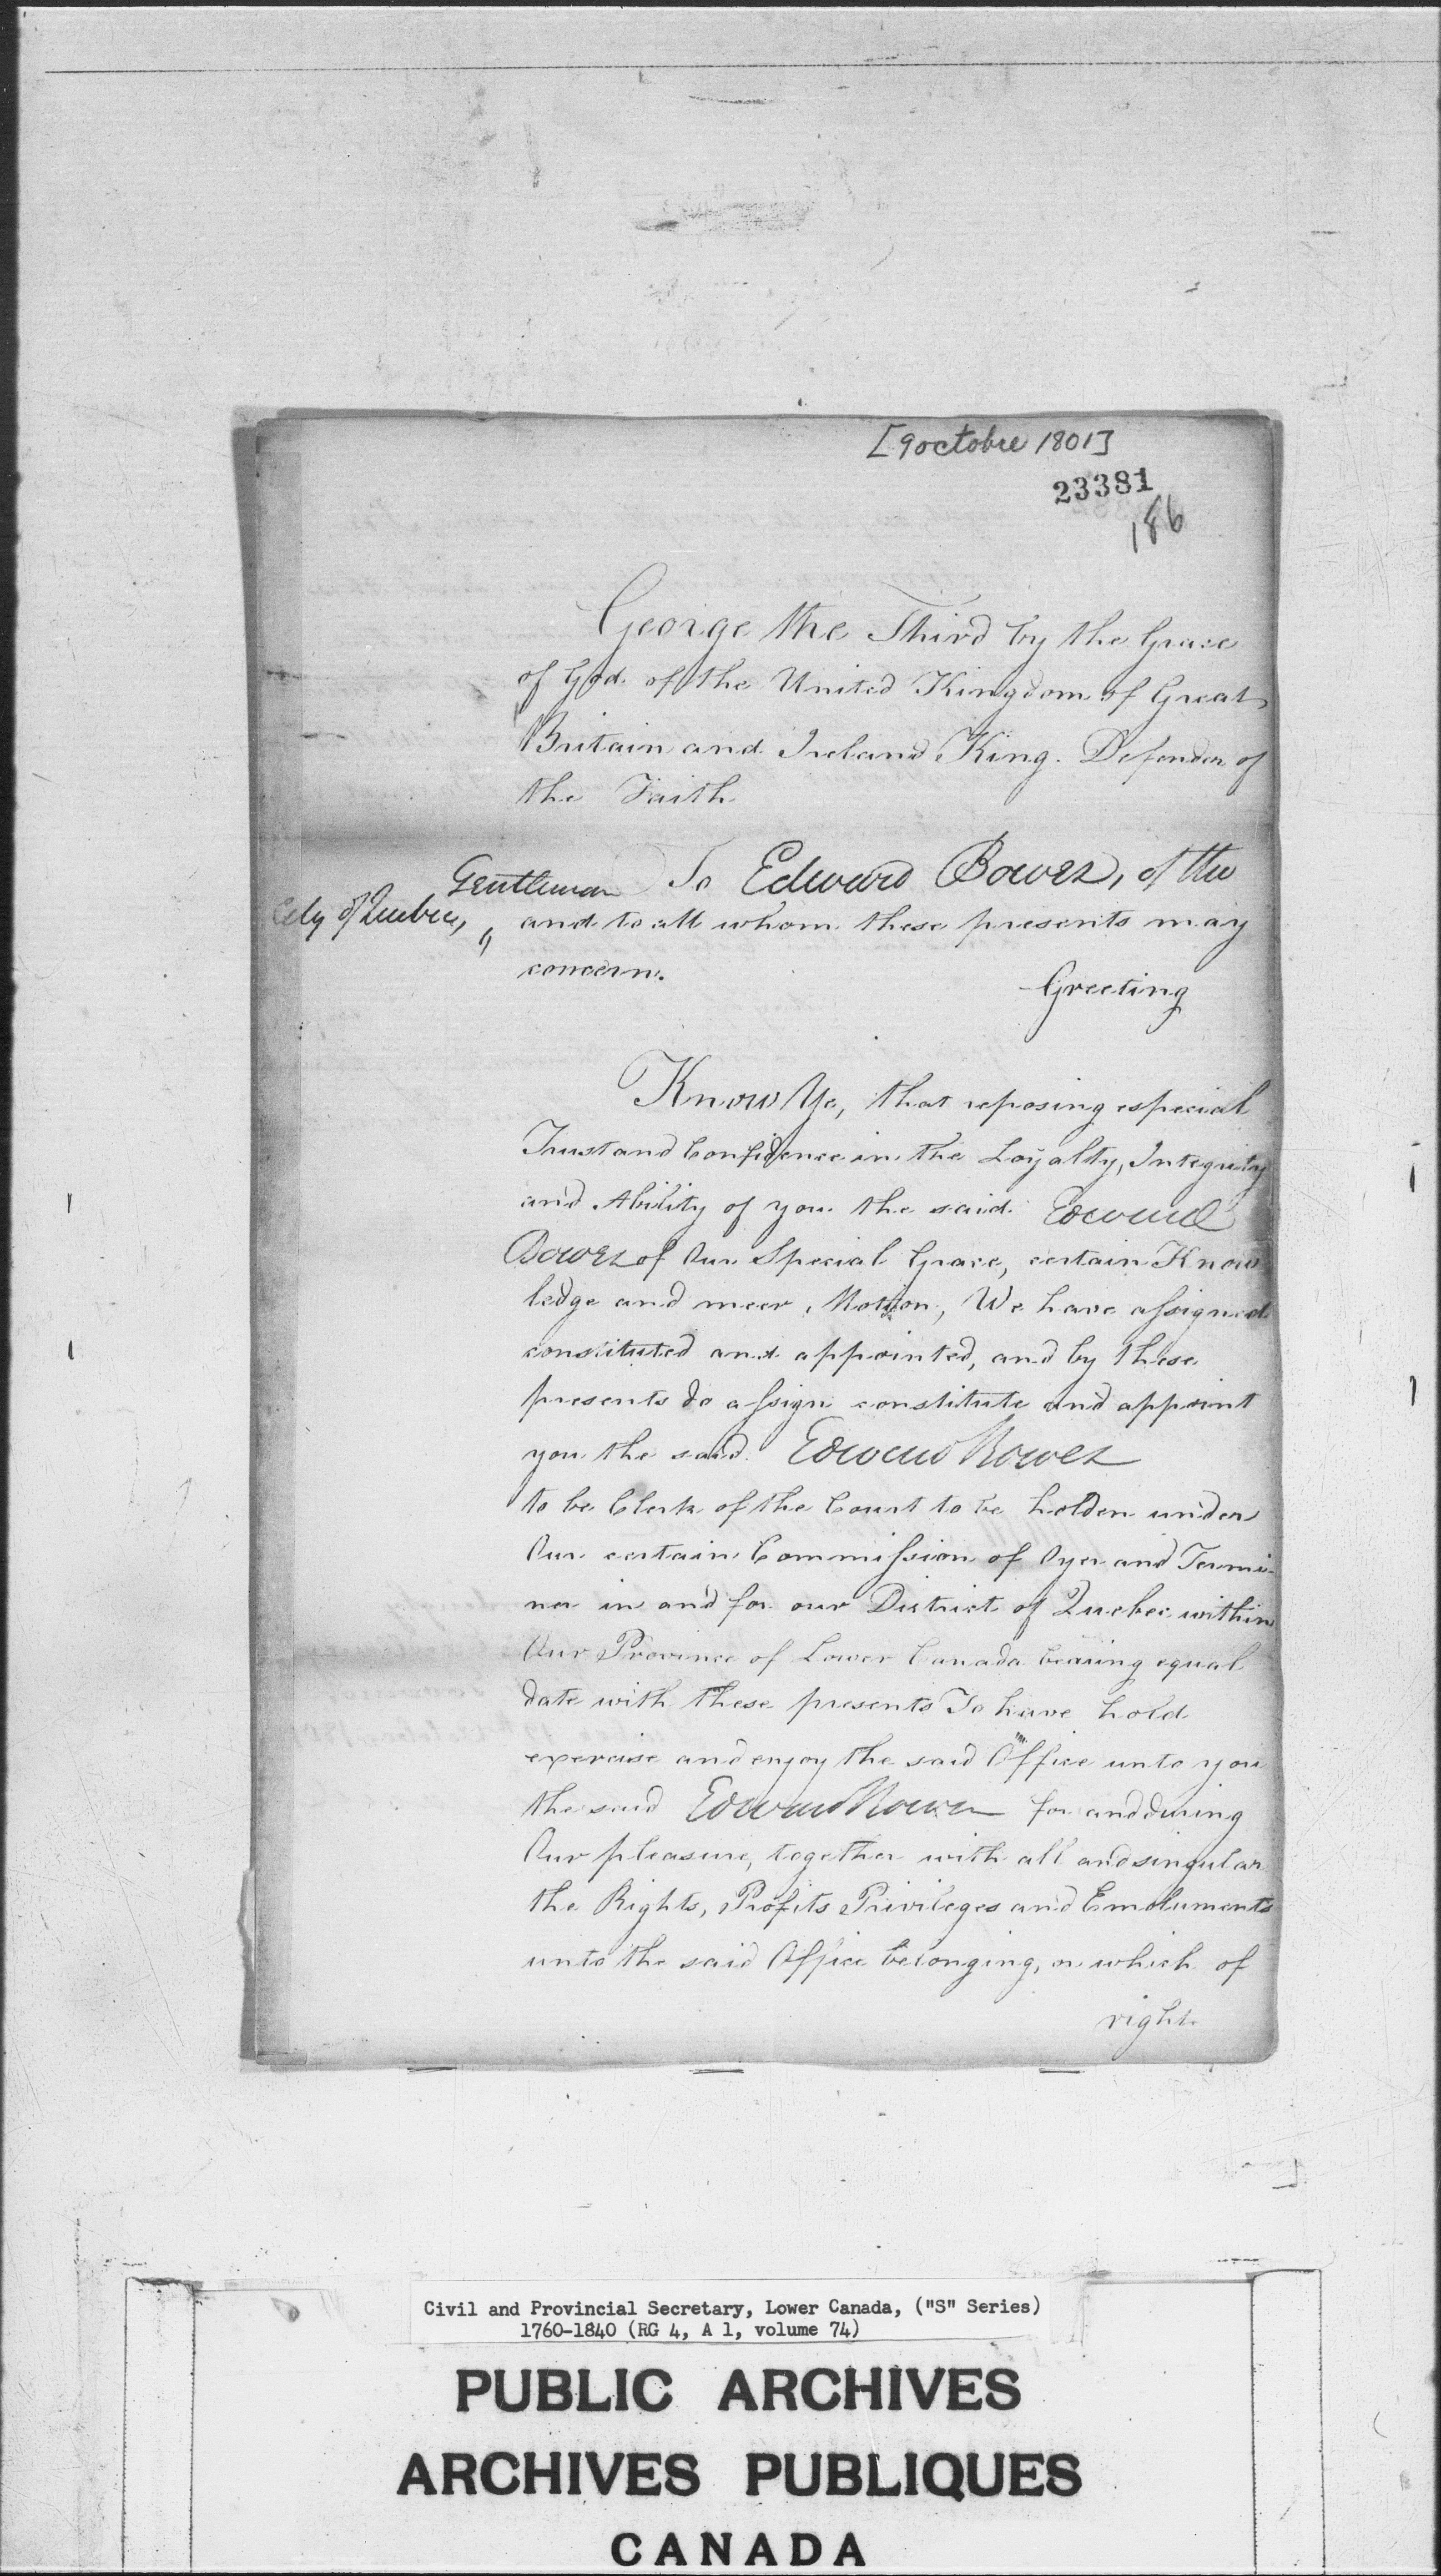 [9 octobre 1801]
23381
186
George the Third by the Grace
of God of the United Kingdom of Great
Britain and Ireland King. Defender of
the Faith
Gentleman To Edward Bowen, of the
City of Quebec, and to all whom these presents may
concern.
Greeting
Know Ye, that reposing especial
Trust and Confidence in the Loyalty, Integrity
and Ability of you the said Edward
Bowen of Our Special Grace, certain Know
ledge and meer Motion, We have assigned
constituted and appointed, and by these
presents do assign constitute and appoint
you the said Edward Bowen
to be Clerk of the Court to be holden under
Our certain Commission of Oyer and Termi-
ner in and for our District of Quebec within
Our Province of Lower Canada bearing equal
date with these presents To have hold
exercise and enjoy the said Office unto you
the said Edward Bowen for and during
Our pleasure, together with all and singular
the Rights, Profits Privileges and Emoluments
unto the said Office belonging, or which of
right
Civil and Provincial Secretary, Lower Canada, ("S" Series)
1760-1840 (RG 4, A 1, volume 74)
PUBLIC ARCHIVES
ARCHIVES PUBLIQUES
CANADA